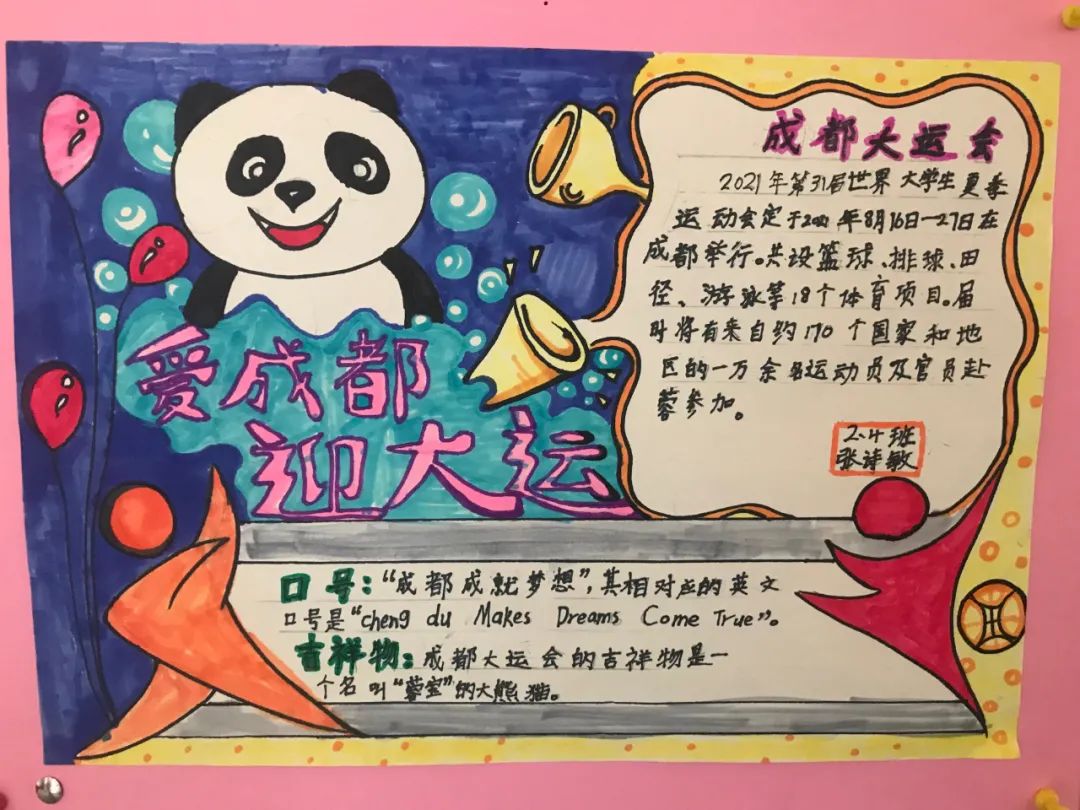 爱成都
迎大运
成都大运会
2021年第31届世界大学生夏季
运动会定于2021年8月16日—27日在
成都举行。共设篮球、排球、田
径、游泳等18个体育项目。届
时将有来自约170个国家和地
区的一万余名运动员及官员赴
蓉参加。
2.4班
张诗敏
口号:“成都成就梦想”,其相对应的英文
口号是“cheng du Makes Dreams Come True”。
吉祥物:成都大运会的吉祥物是一
个名叫“蓉宝”的大熊猫。